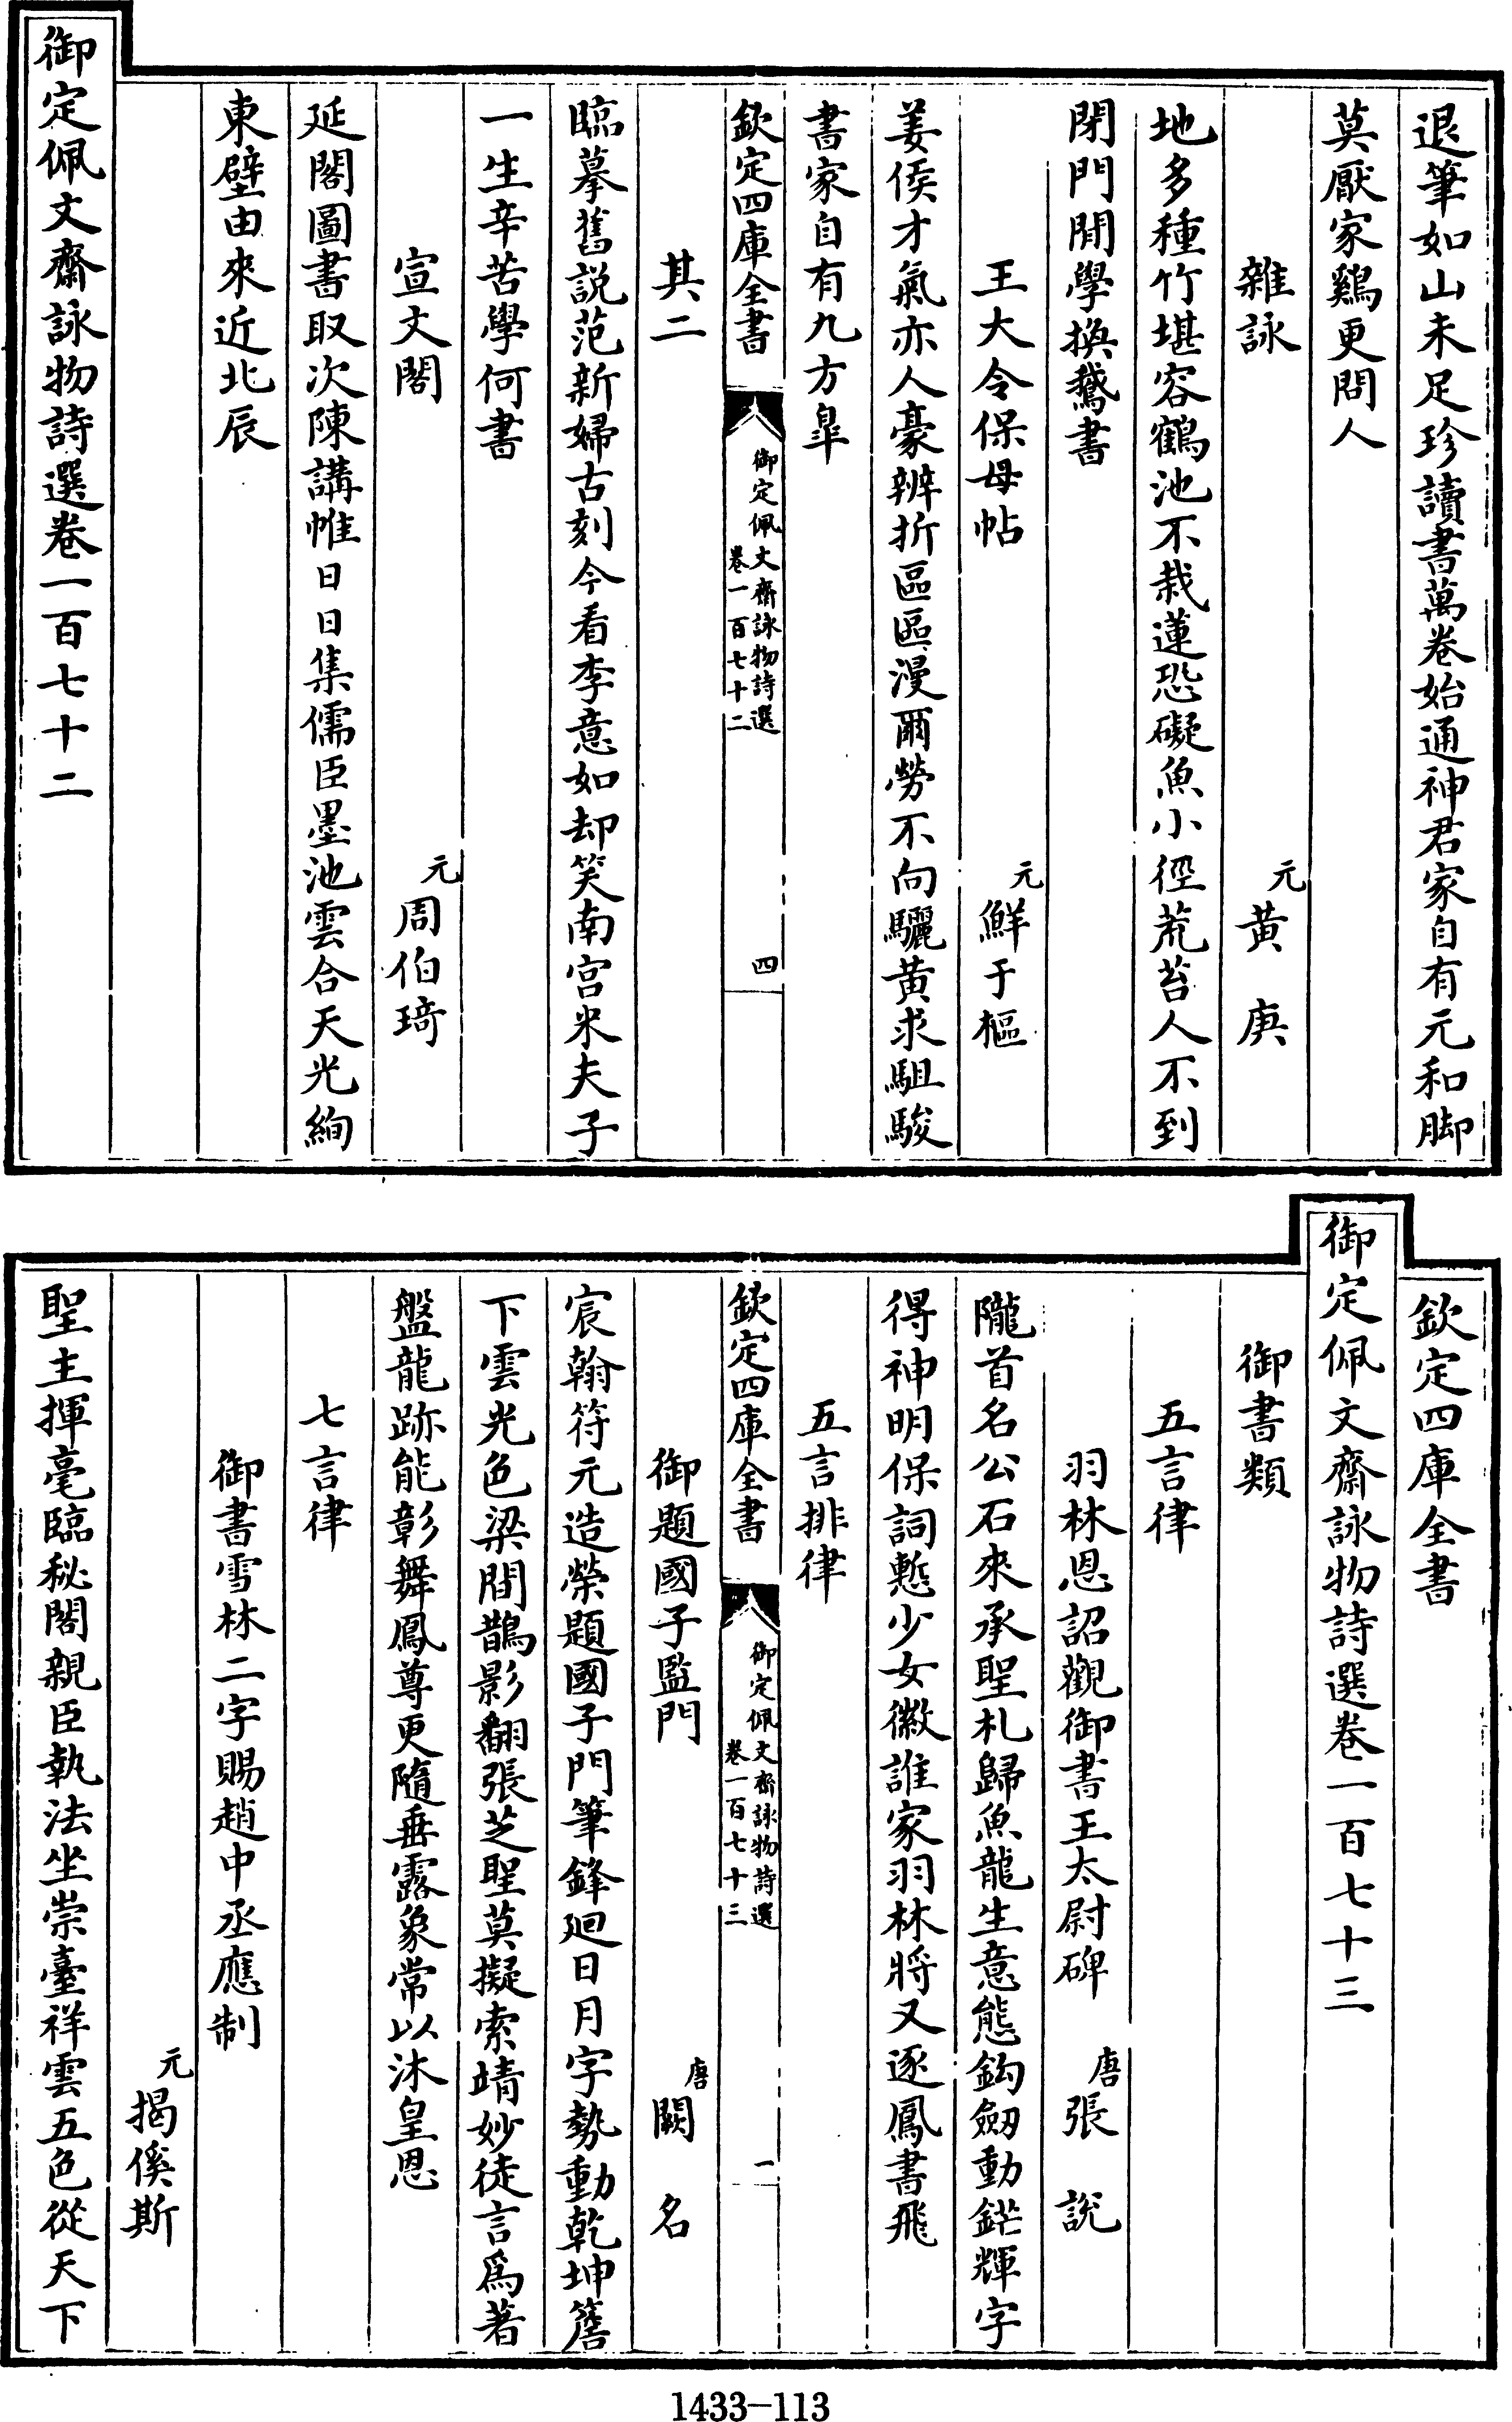 退筆如山未足珍讀書萬卷始通神君家自有元和脚
莫厭家鷄更問人
雜詠
元黃庚
地多種竹堪容鶴池不栽蓮恐礙魚小徑荒苔人不到
閉門閒學換鵞書
王大令保母帖
元鮮于樞
姜侯才氣亦人豪辨折區區漫爾勞不向驪黃求駔駿
書家自有九方臯
欽定四庫全書
御定佩文齋詠物詩選
卷一百七十二
四
其二
臨摹舊説范新婦古刻今看李意如却笑南宮米夫子
一生辛苦學何書
宣文閣
元周伯琦
延閣圖書取次陳講帷日日集儒臣墨池雲合天光絢
東壁由來近北辰
御定佩文齋詠物詩選卷一百七十二
欽定四庫全書
御定佩文齋詠物詩選卷一百七十三
御書類
五言律
羽林恩詔觀御書王太尉碑
唐張說
隴首名公石來承聖札歸魚龍生意態鈎劒動鋩輝字
得神明保詞慙少女徽誰家羽林將又逐鳳書飛
五言排律
欽定四庫全書
御定佩文齋詠物詩選
卷一百七十三
一
御題國子監門
唐闕名
宸翰符元造榮題國子門筆鋒廻日月字勢動乾坤簷
下雲光色梁間鵲影翻張芝聖莫擬索靖妙徒言爲著
盤龍跡能彰舞鳳尊更隨垂露象常以沐皇恩
七言律
御書雪林二字賜趙中丞應制
元揭傒斯
聖主揮毫臨秘閣親臣執法坐崇臺祥雲五色從天下
1433-113